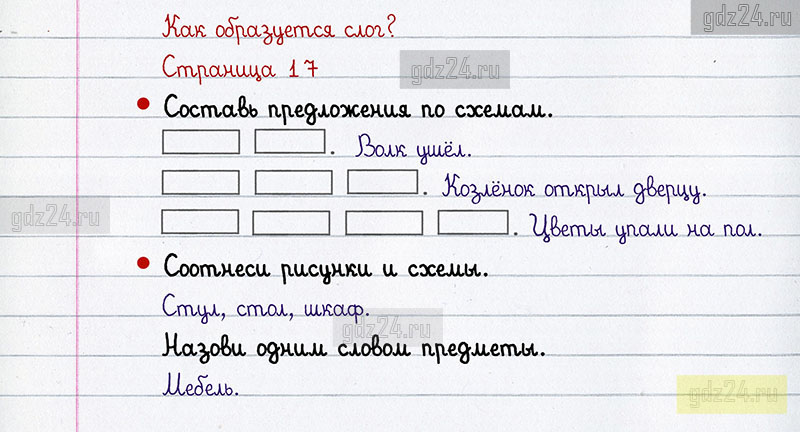 gdz24.ru
Как образуется слог?
gdz24.ru
Страница 17
Составь предложения по схемам.
. Волк ушёл.
. Козлёнок открыл дверцу.
gdz24.ru
. Цветы упали на пол.
Соотнеси рисунки и схемы.
Стул, стол, шкаф.
gdz24.ru
Назови одним словом предметы.
Мебель.
gdz24.ru